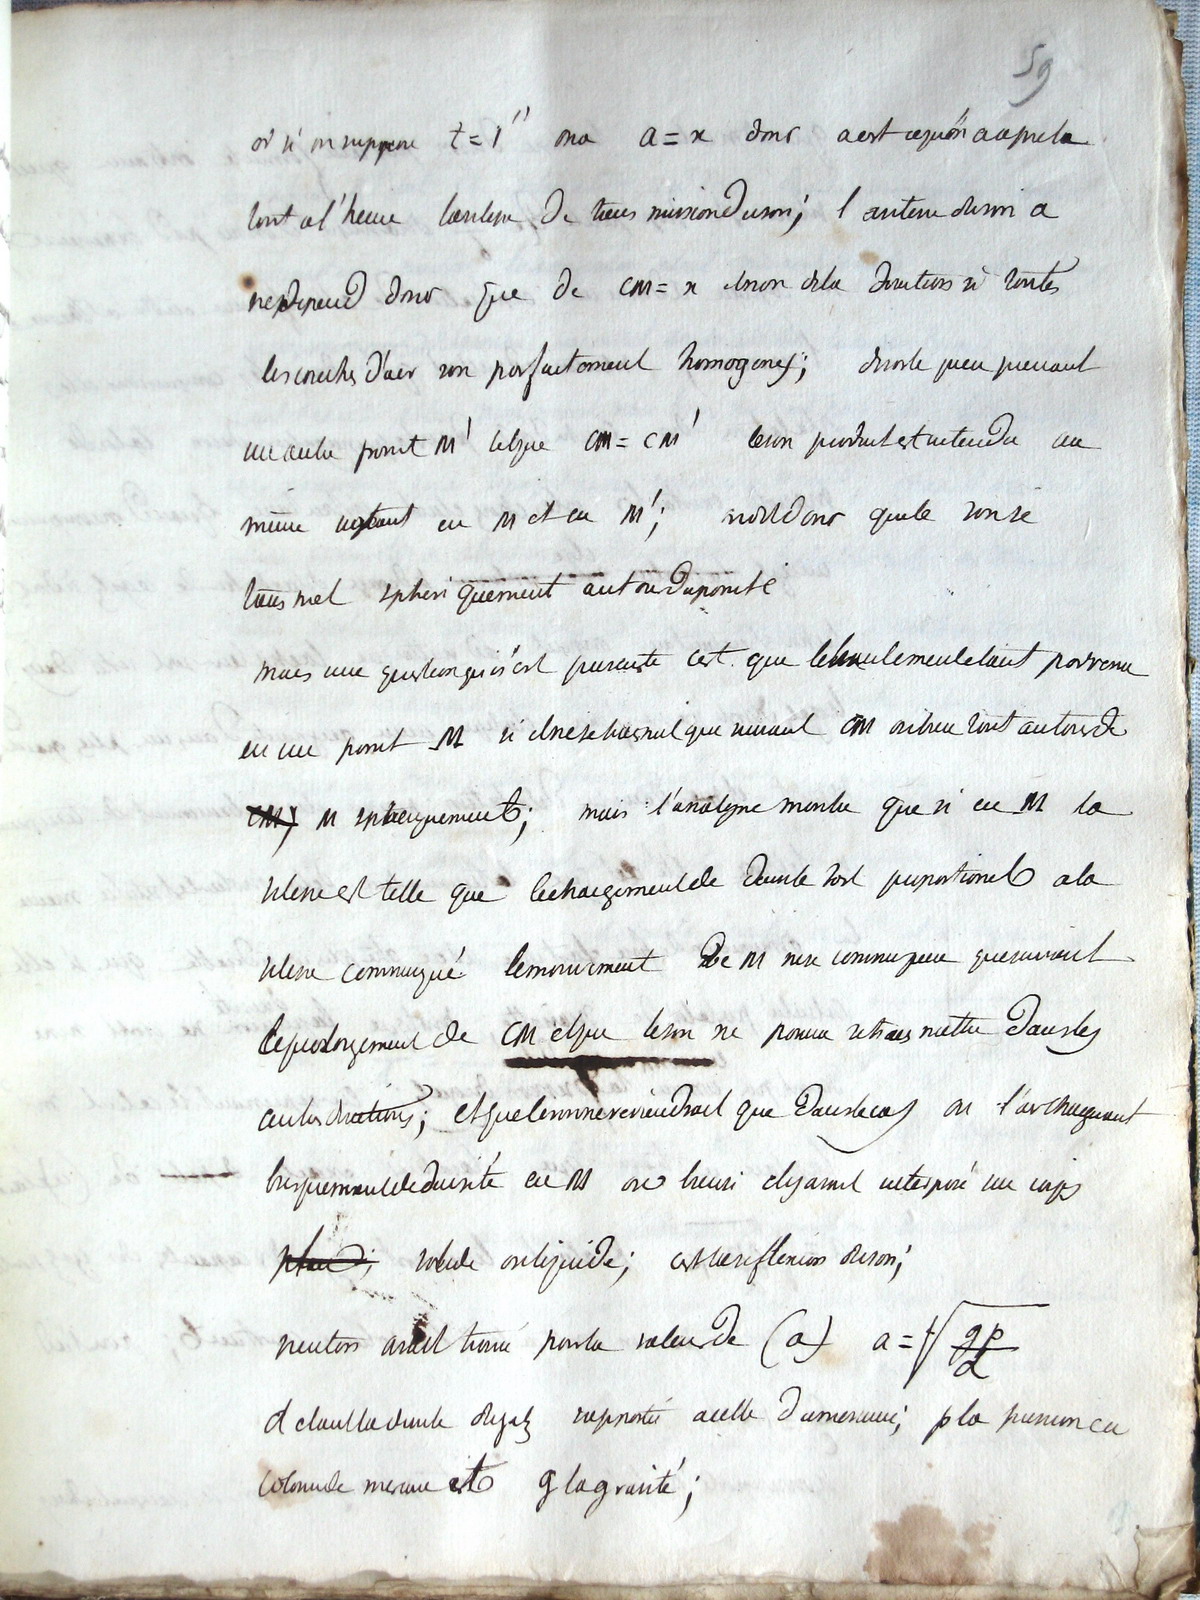 59
or si on suppose t = 1'' on a a = x donc a est ce qu'on a appelé
tout a l'heure la vitesse de transmission du son; l'
ne depend donc que de CM = x et non de la direction si toutes
les couches d'air son parfaitement homogenes; de sorte qu'en prenant
un autre point M' tel que CM = CM' le son produit est entendu au
même instant en M et en M'; voila donc que le son se
transmet spheriquement autour du point C
mais une question qui s'est presenté c'est que l'ebranlement etant parvenu
en un point M si il ne se transmet que suivant CM ou bien tout autour de
CM; M spheriquement; mais l'analyse montre que si en M la
vitesse est telle que le changement de densité soit proportionel a la
vitesse communiqué le mouvement de M ne se communique que suivant
le prolongement de CM et que le son ne pourra se transmettre dans les
autres directions; et que le son ne reviendrait que dans le cas ou l'air changeant
brusquement de densité en M ou bien s'il y avait interposé un corps
solide ou liquide; c'est la reflexion du son;
neuton avait trouvé pour la valeur de (a) a = √(gp/d)
d etant la densité du gaz rapportée a celle du mercure; p la pression en
colonne de mercure et g la gravité;